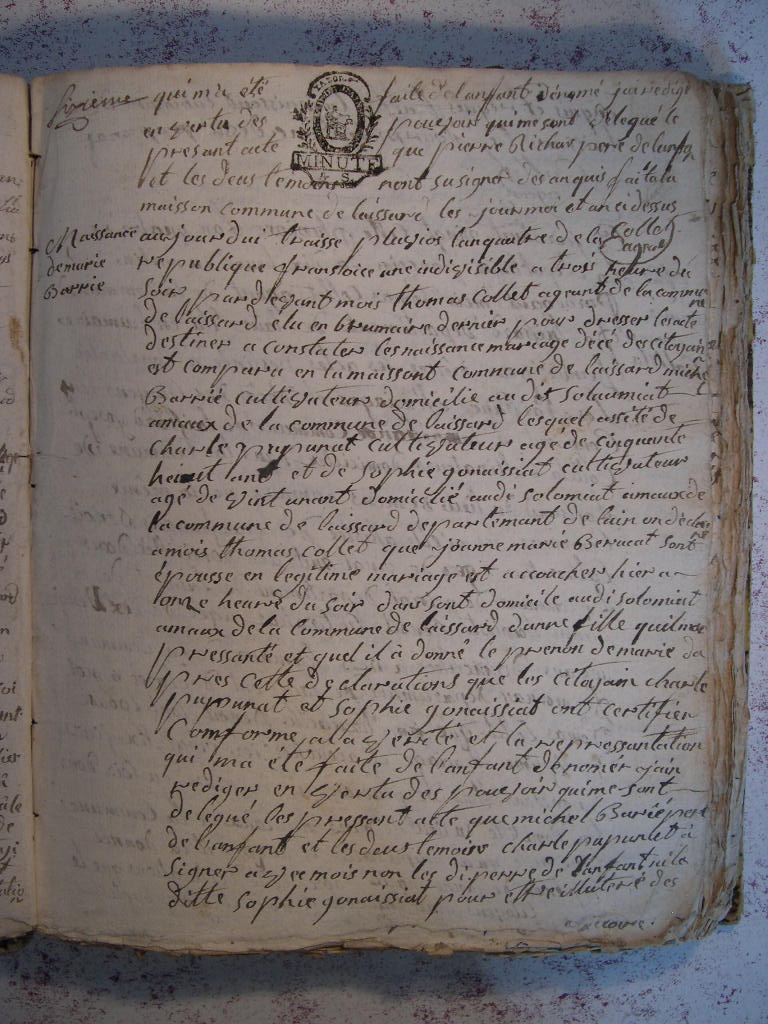 Sixieme
qui m'a été faite de lanfant dénomé jai redigé
en vertu des pouvoir qui me sont delegué le
presant acte que pierre Richar pere de lanfan
et les deus temoins nont su signer des anquis fait a la
maisson commune de laissard les jour moi et an ci dessus
MINUTE
Collet
agent
Naissance
de marie
Barrie
aujourdui traisse pluvios lanquatre de la
republique fransoice une indivisible a trois heure du
soir par devant mois thomas Collet ageant de la commune
de laissard elu en brumaire dernier pour dresser les acte
destiner a constater les naissance mariage décé des citoyain
est comparu en la maissont commune de laissard michel
Barrié cultivateur domicilie au dis solaumiat
amaux de la commune de laissard lesquel assité de
charle pupunat cultivateur agé de cinquante
heiut ant et de sophie gonaissiat cultivateur
agé de vint un ant domicilié audi solomiat amaux de
la commune de laissard departemant de lain on declaré
a mois thomas Collet que joanne marie Berucat sont
épousse en legitime mariage est accoucher hier a
lonze heure du soir dans sont domicile audi solomiat
amaux de la Commune de laissard dunne fille quil mas
pressanté et quel il à donné le prenon de marie da
pres cette declarations que les citoyain charle
pupunat et sophie gonaissiat ont certifier
Comforme a la verité et la repressantation
qui ma été faite de lanfant denomér jain
rediger en vertu des pouvoir qui me sont
delegué les pressant acte que michel Barié pere
de lanfant et les deus temoire charle pupunat à
signer avec mois non les di perre de lanfant ni la
ditte sophie gonaissiat pour ettre illuteré des